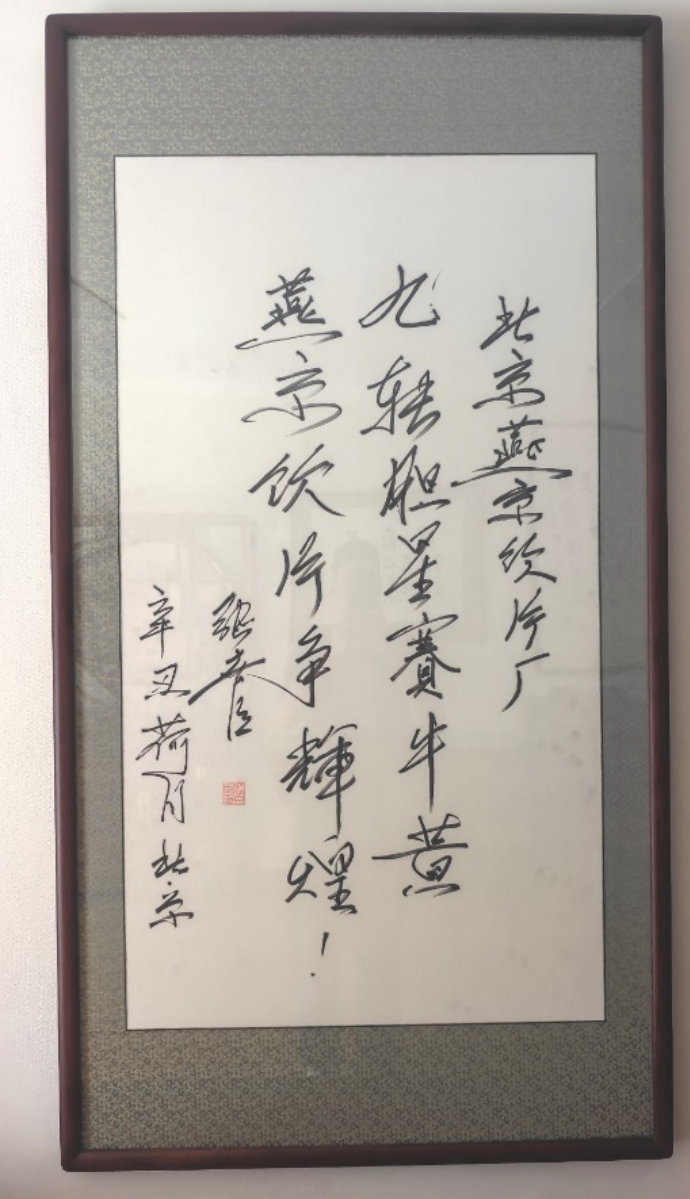 北京燕京饮片厂
九转胆星赛牛黄
燕京饮片争輝煌！
辛丑荷月北京